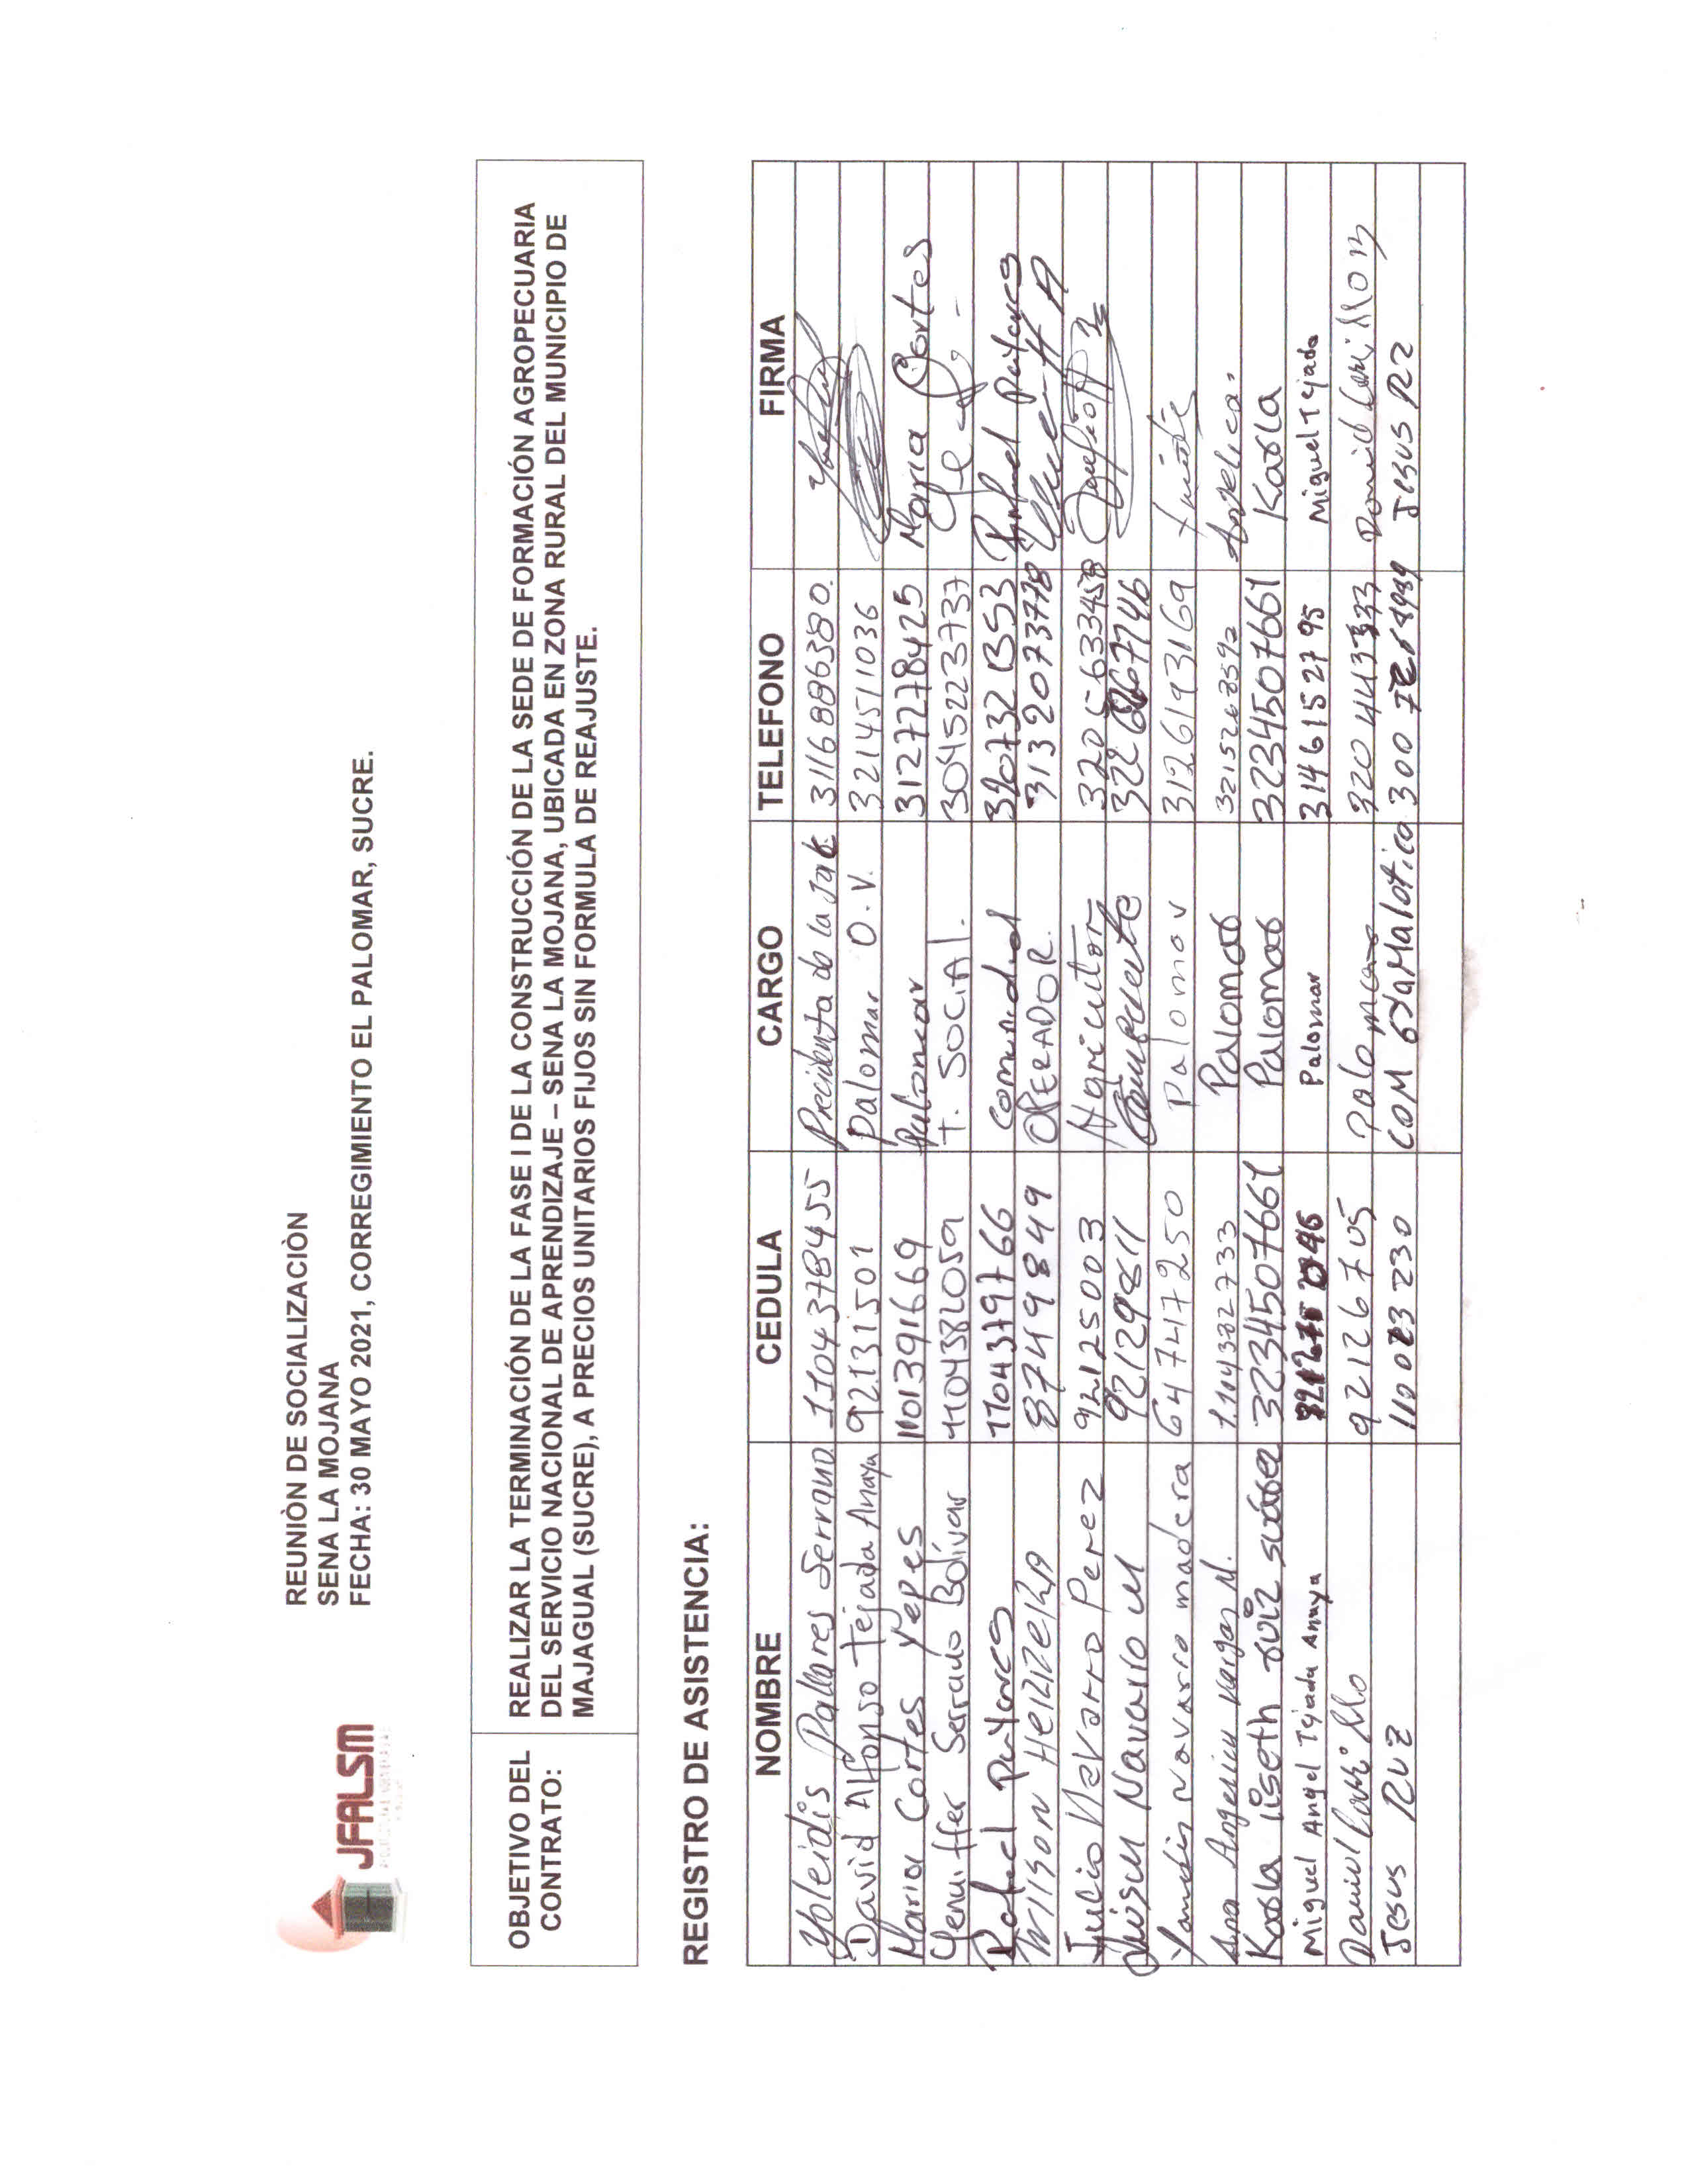 JFALSM
REUNIÒN DE SOCIALIZACIÒN
SENA LA MOJANA
FECHA: 30 MAYO 2021, CORREGIMIENTO EL PALOMAR, SUCRE.
OBJETIVO DEL CONTRATO:
REALIZAR LA TERMINACIÓN DE LA FASE I DE LA CONSTRUCCIÓN DE LA SEDE DE FORMACIÓN AGROPECUARIA
DEL SERVICIO NACIONAL DE APRENDIZAJE – SENA LA MOJANA, UBICADA EN ZONA RURAL DEL MUNICIPIO DE
MAJAGUAL (SUCRE), A PRECIOS UNITARIOS FIJOS SIN FORMULA DE REAJUSTE.
REGISTRO DE ASISTENCIA:
NOMBRE CEDULA CARGO TELEFONO FIRMA
Yoleidis Pallares Serrano 1104378455 Precidenta de la 3116886380.
David Alfonso Tejada Anaya 92.131501 Palomar O.V. 3214511036
Maria Cortes Yepes 1101391669 Palomar 3127278425 Maria Cortes
Yenuiffer Serrano Bolívar 1104382059 T. SOCIAL. 3045223737
Rafael payares 1104379766 comunidad 3207321353 Rafael payares
Wilson HERRERA 8749849 OPERADOR. 3132073778
Julio Navarro Perez 92125003 Agricultor 3205633458
Navarro M 92129811
Navarro madera 64747250 Palomar 3126193169
Ana Angelica Vargas M. 1.104382733 Palomar 3215268592 Angelica.
Karla liseth ruiz suárez 3234507661 Palomar 3234507661 Karla
Miguel Angel Tejada Anaya Palomar 3146152795 Miguel Tejada
Daniel Carrillo 92126705 Palomar Daniel Carrillo
Jesus RUZ COM 300 Jesus RZ